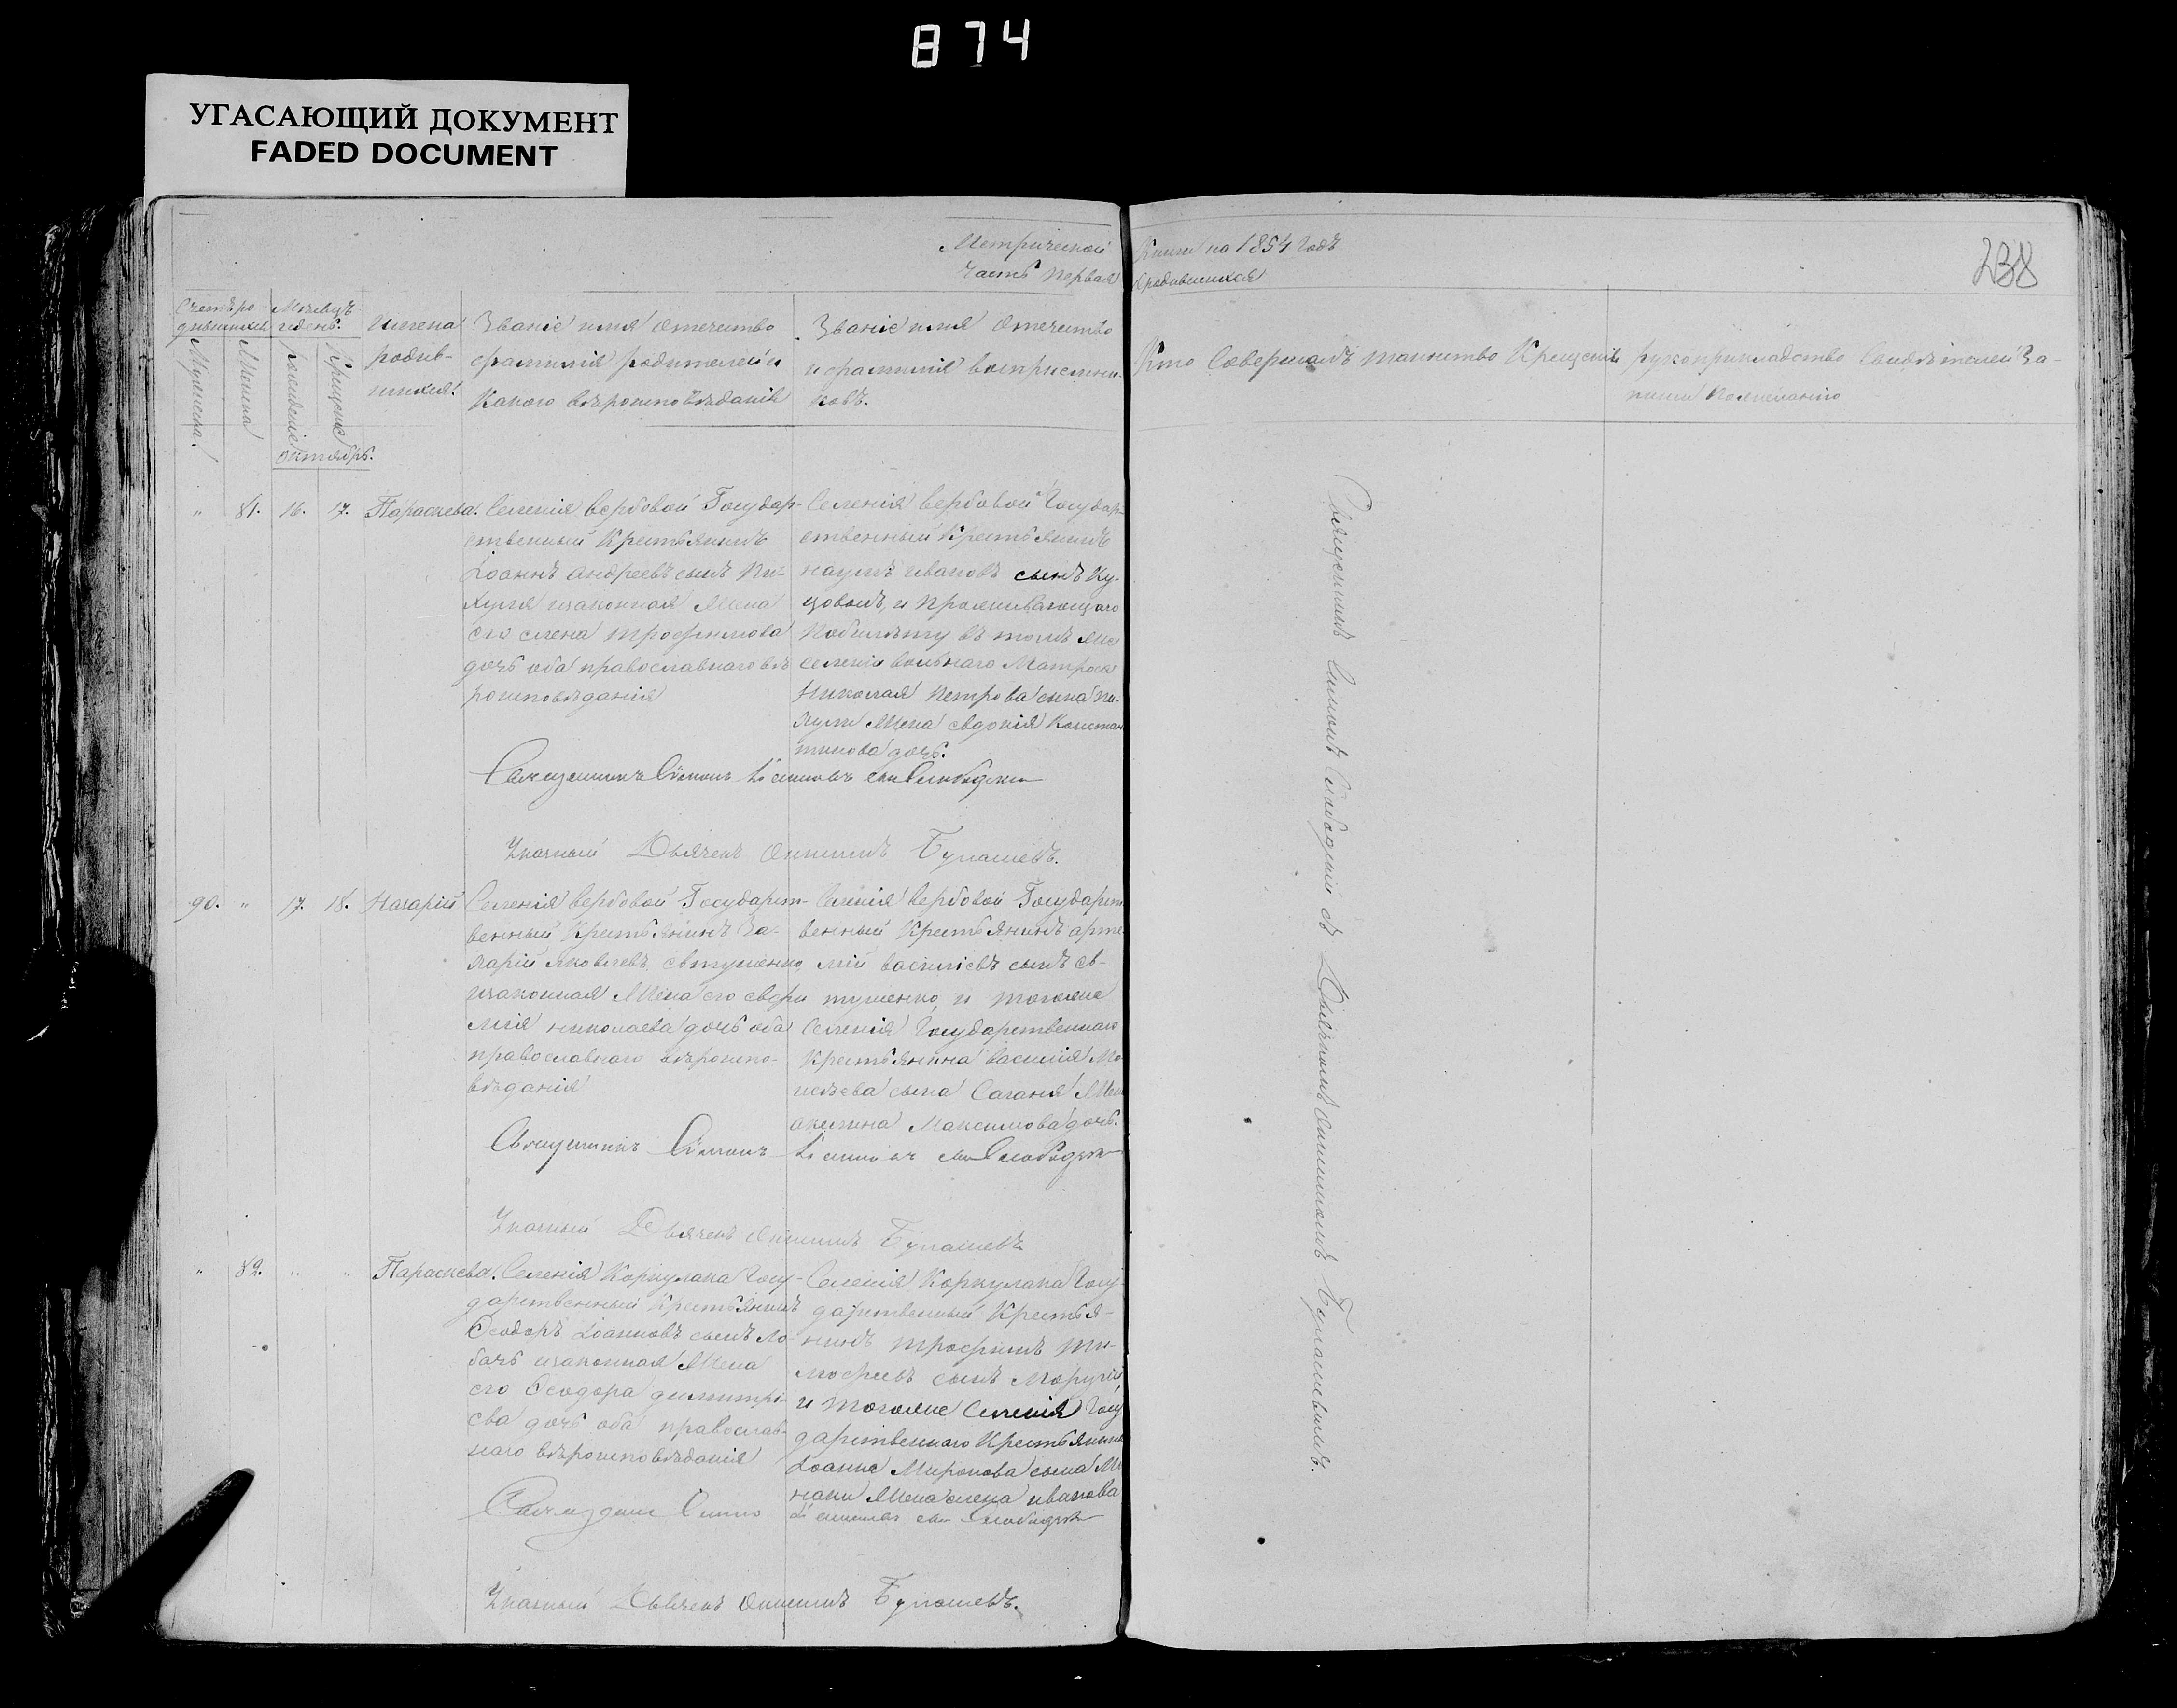 874
УГАСАЮЩИЙ ДОКУМЕНТ
FADED DOCUMENT
Метрической Книги на 1854 Годъ
Часть первая о родившихся
238
Счетъ ро-
дившихся
Мужеска.
Женска
Месяцъ
и день.
рожденія
Крещенія
Октябрь.
имена
родив-
шихся.
Званіе имя отечество
фамилія родителей и
Какого вѣроисповѣданія
Званіе имя отечество
и фамилія воспріемни-
ковъ.
Кто Совершалъ таинство Крещенія
рукоприкладство Свидѣтелей За-
писи по желанію
" 81. 16. 17. Параскева.
Селенія вербовой Государ-
ственный Крестьянинъ
Іоаннъ Андреевъ сынъ
изаконная Жена
его елена трофимова
дочь оба православнаго вѣ
роисповѣданія
Селенія вербовой Государ-
ственный Крестьянинъ
наумъ ивановъ сынъ Ку-
цовыъ, и проживающаго
побилету въ томъ же
селеніи вольнаго Матроса
Николая петрова сына
Жена евдокія Констан
тинова дочь.
Священникъ Симонъ Слободскій
Указный Дьячекъ Онисимъ Булашевъ.
90. " 17. 18. Назарій
Селенія вербовой Государст-
венный Крестьянинъ За-
харій яковлевъ евтушенко
изаконная Жена его евфи
мія николаева дочь оба
православнаго вѣроиспо-
вѣданія
Селенія вербовой Государст
венный Крестьянинъ арте
мій василіевъ сынъ ев-
тушенко и тогоже
Селенія Государственнаго
Крестьянина василія Мо
исѣева сына Саганя Жена
акилина Максимова дочь.
Священникъ Симонъ Слободскій
Указный Дьячекъ Онисимъ Булашевъ
" 82. " " Параскева.
Селенія Коркулака Госу-
дарственный Крестьянинъ
Ѳеодоръ Іоанновъ сынъ Ло-
бачь изаконная Жена
его Ѳеодора димитрі-
ева дочь оба православ-
наго вѣроисповѣданія
Селенія Коркулака Госу
дарственный Крестья-
нинъ трофимъ ти-
мофеевъ сынъ
и тогоже Селенія Госу
дарственнаго Крестьянина
Іоанна Миронова сына
Жена елена иванова
Священникъ Симонъ Слободскій
Указный Дьячекъ Онисимъ Булашевъ.
Священникъ Симонъ Слободскій съ Дьячкомъ Онисимомъ Булашевымъ.